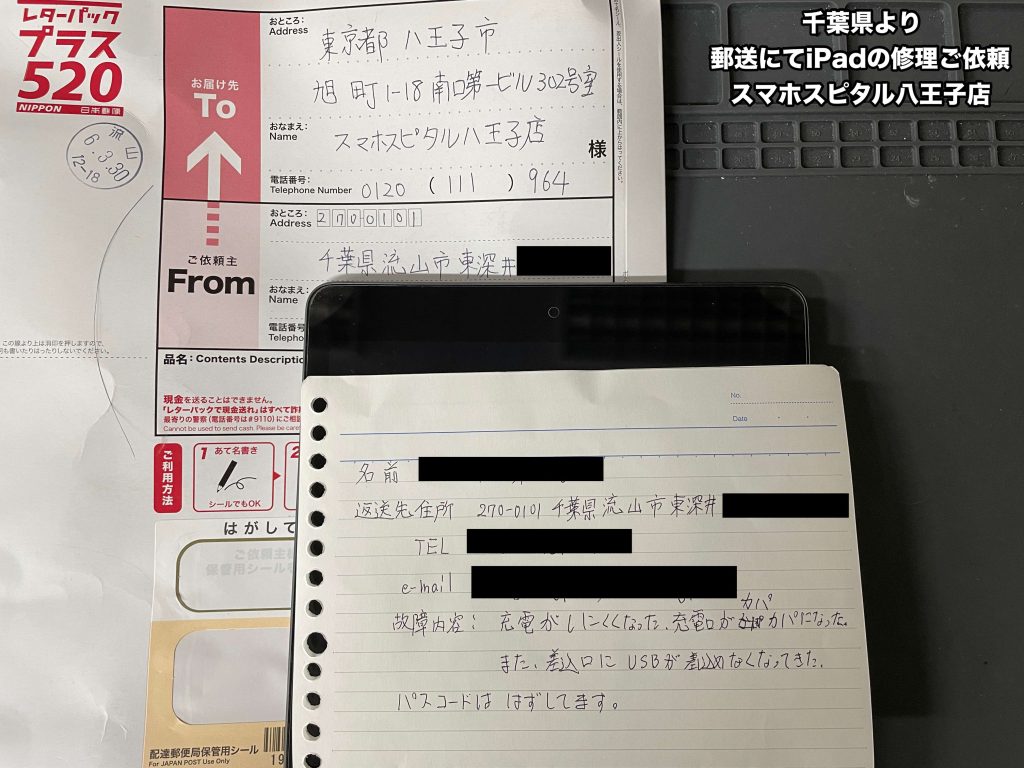 千葉県より
郵送にてiPadの修理ご依頼
スマホスピタル八王子店
レターパック
プラス
520
NIPPON 日本郵便
流山
6.3.30
12-18
お届け先
To
おところ:
Address
東京都 八王子市
旭町1-18 南口第一ビル302号室
おなまえ:
Name
スマホスピタル八王子店
様
電話番号:
Telephone Number 0120 (111) 964
ご依頼主
From
おところ:
Address 2700101
千葉県流山市東深井
おなまえ
Name
電話番号
Telepho
この線より上は消印を押しますので、
何も書いたりはったりしないでください。
品名:Contents Descriptio
現金を送ることはできません。
「レターパックで現金送れ」はすべて詐
最寄りの警察(電話番号は#9110)にご相
Cannot be used to send cash. Please be care
ご利用方法
1 あて名書き
シールでもOK
2
はがして
ご依頼主様
保管用シール
配達郵便局保管用シール
For JAPAN POST Use Only
19
No.
Date
名前
返送先住所 270-0101 千葉県流山市東深井
TEL
e-mail
故障内容: 充電がしにくくなった、充電口がカパカパになった。
また、差込口にUSBが差込めなくなってきた。
パスコードははずしてます。